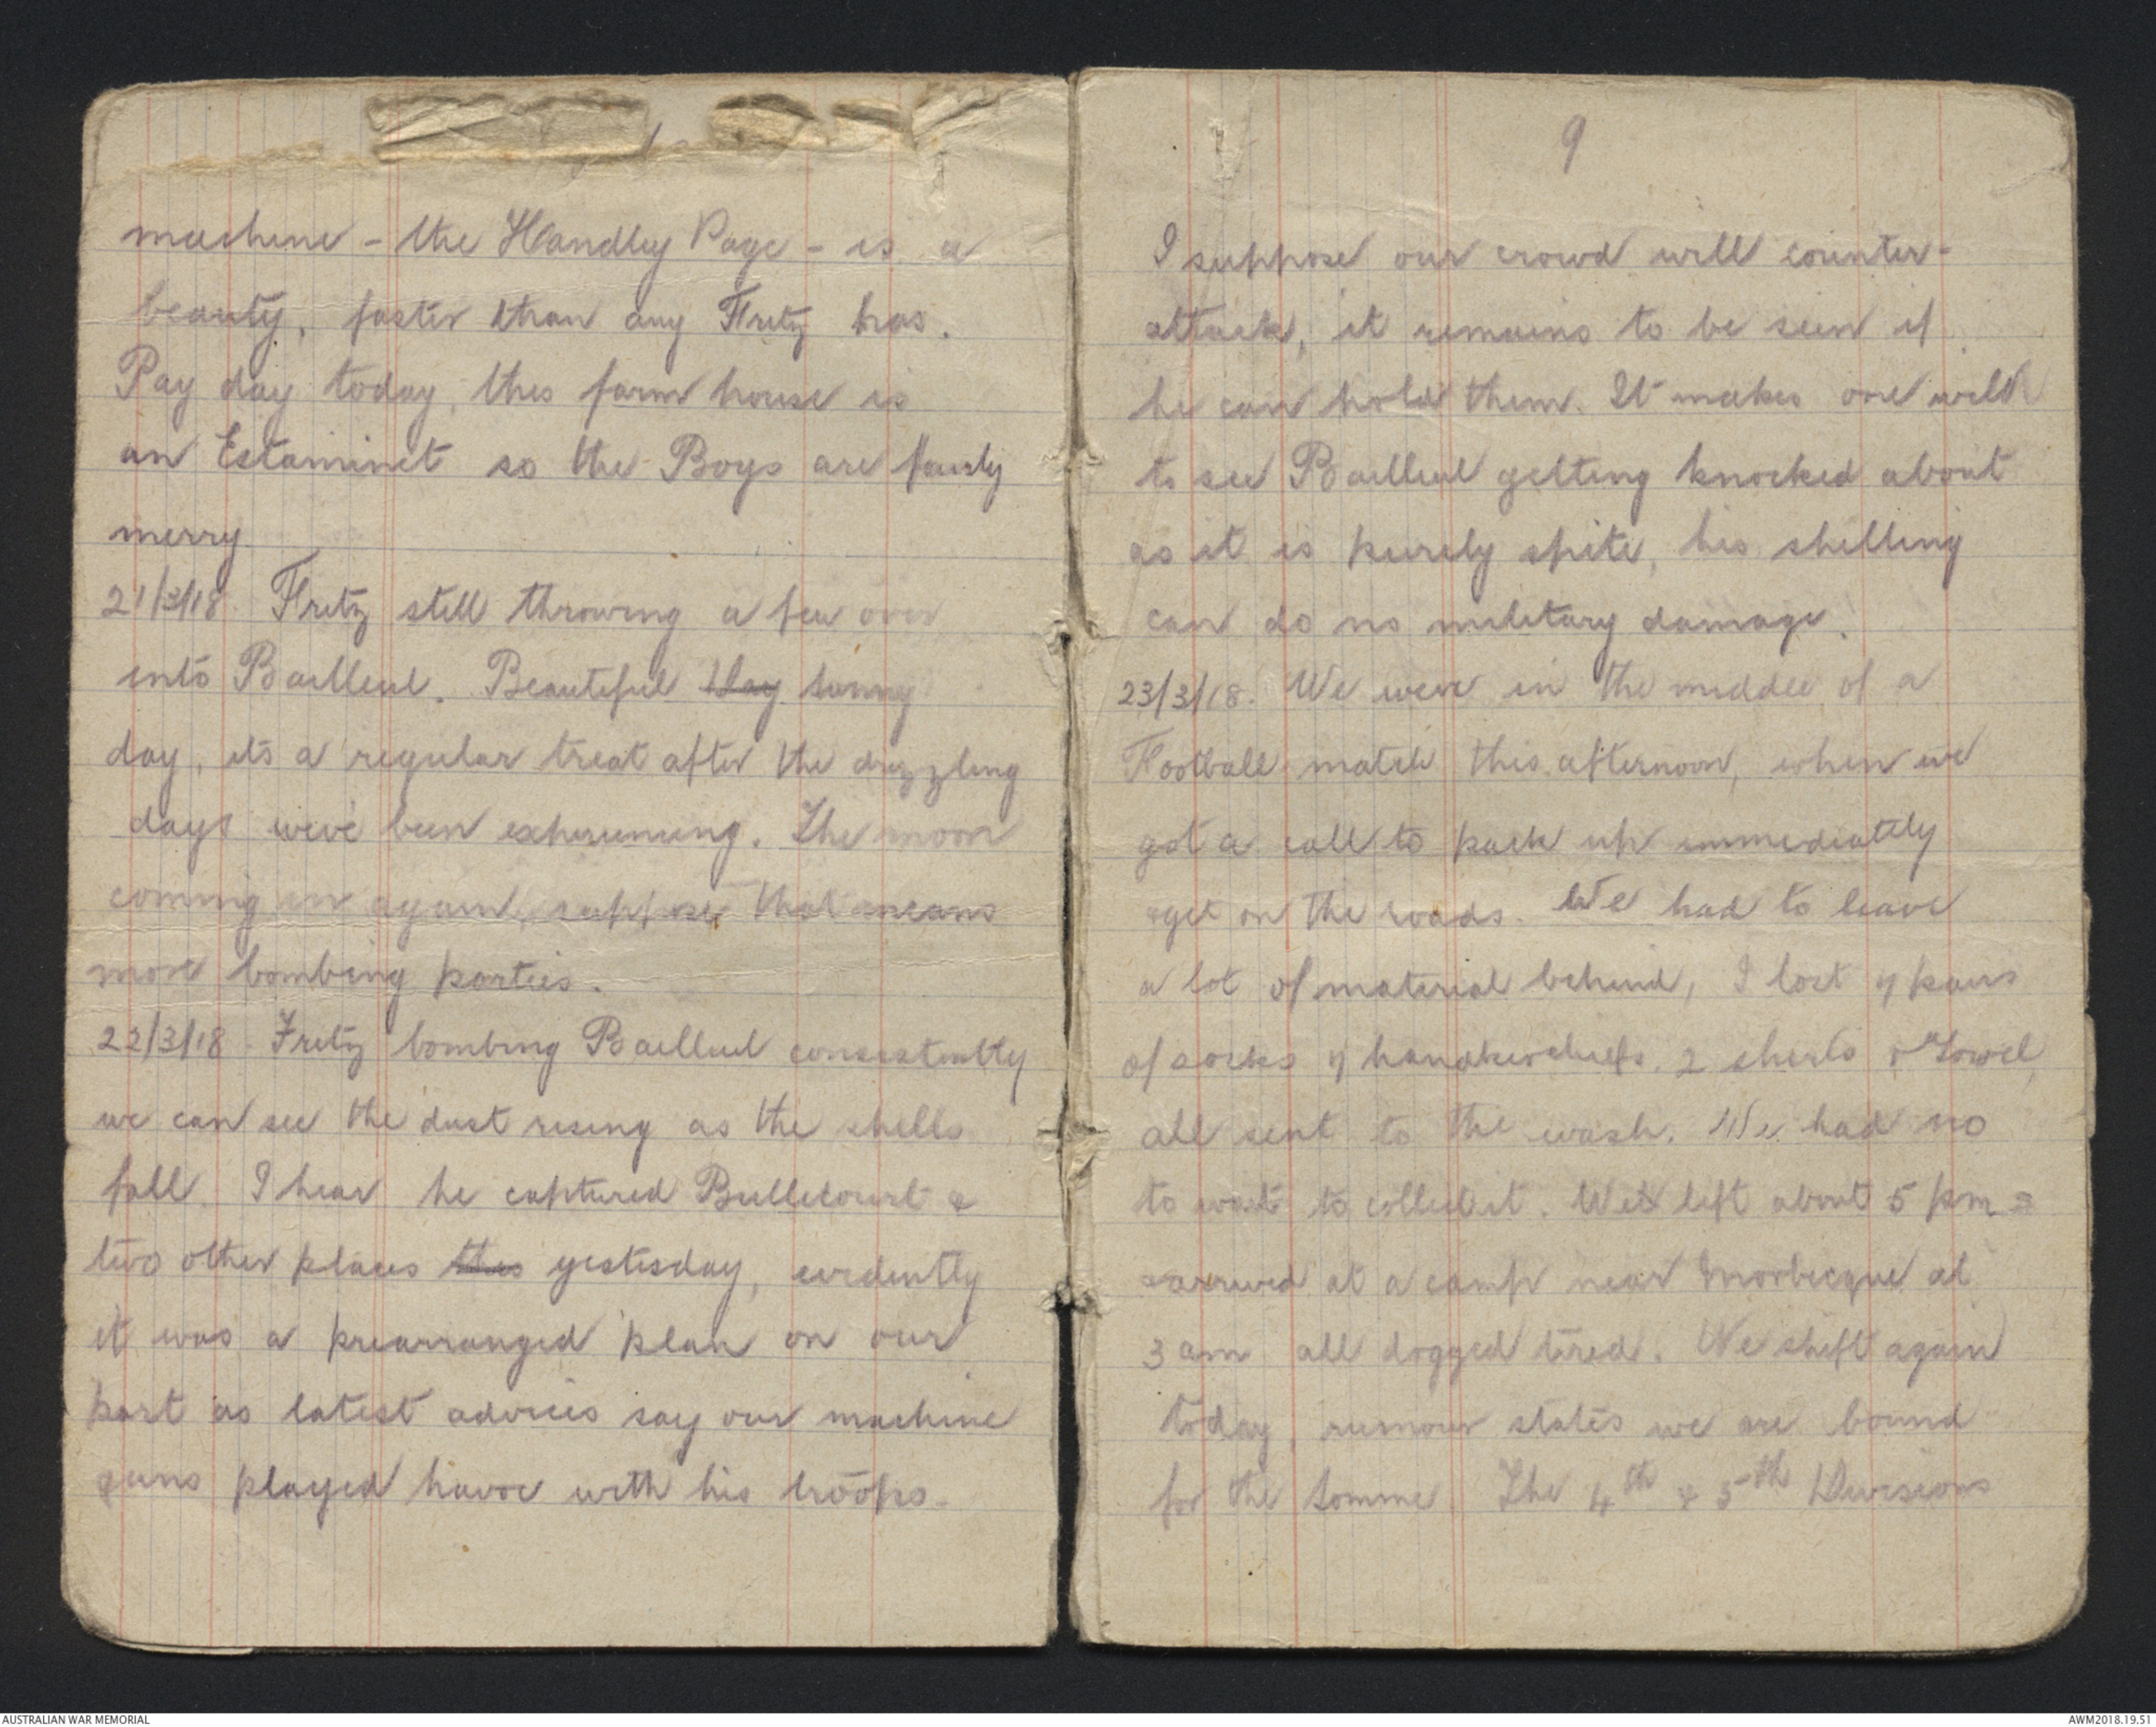 machine - the Handley Page - is a
beauty, faster than any Fritz has.
Pay day today, this farm house is
an Estaminet so the Boys are fairly
merry
21/3/18. Fritz still throwing a few over
into Bailleul. Beautiful Day sunny
day, its a regular treat after the drizzling
days we've been experiencing. The moon
coming in again, suppose that means
more bombing parties.
22/3/18 - Fritz bombing Bailleul consistently
we can see the dust rising as the shells
fall. I hear he captured Bullecourt &
two other places this yestesday, evidently
it was a prearranged plan on our
part as latest advices say our machine
guns played havoc with his troops.
9
I suppose our crowd will counter-
attack, it remains to be seen if
he can hold them. It makes one wild
to see Bailleul getting knocked about
as it is purely spite, his shelling
can do no military damage.
23/3/18. We were in the middle of a
Football match this afternoon, when we
got a call to pack up immediatly
& get on the roads. We had to leave
a lot of material behind, I lost 4 pairs
of socks 4 handkerchiefs, 2 shirts & Towel,
all sent to the wash. We had no
to wait to collect it. We left about 5 pm &
arrived at a camp near Morbecque at
3 am all dogged tired. We shift again
today, rumour states we are bound
for the Somme. The 4th & 5th Divisions
AUSTRALIAN WAR MEMORIAL
AWM2018.19.51